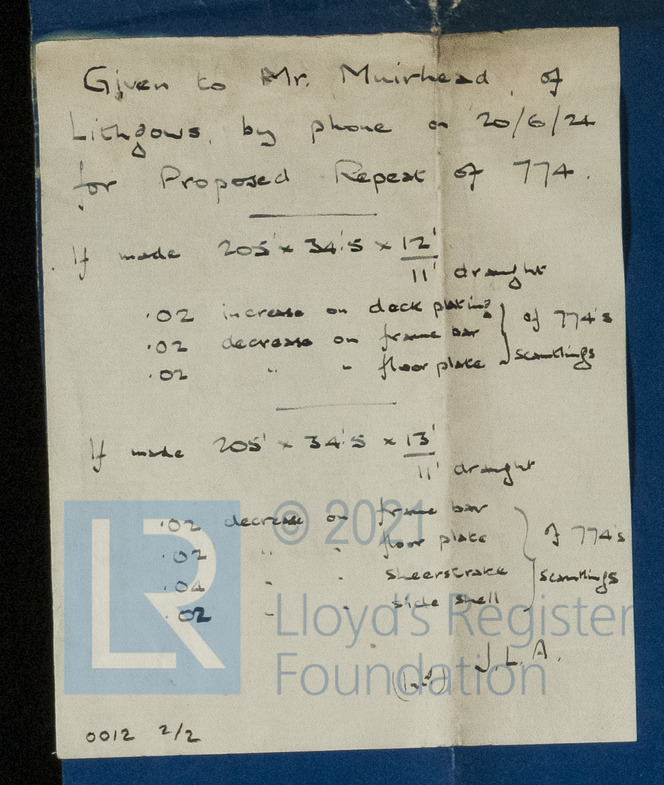 Given to Mr. Muirhead, of
Lithgows, by phone on 20/6/24
for Proposed Repeat of 774.
If made 205' x 34'.5 x 12'
11' draught
.02 increase on deck plating
.02 decrease on frame bar
.02 " " floor plate
of 774's
scantlings
If made 205' x 34'.5 x 13'
11' draught
.02 decrease on frame bar
.02 " " floor plate
.04 " " sheerstrake
.02 " " side shell
of 774's
scantlings
J.L.A.
0012 2/2
LR
© 2021
Lloyd's Register
Foundation